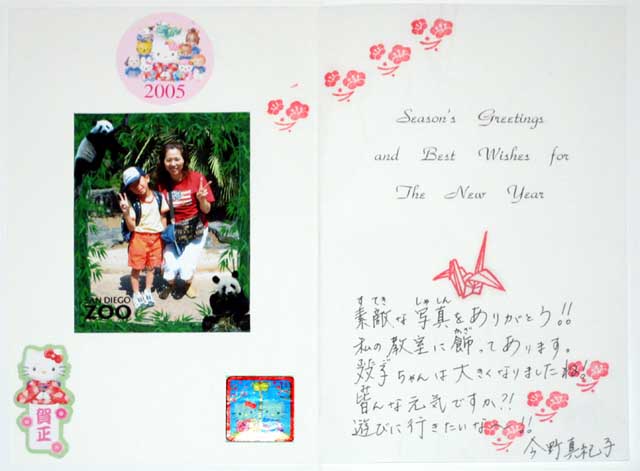 2005
SAN DIEGO
ZOO
賀正
Season's Greetings
and Best Wishes for
The New Year
すてき しゃしん
素敵な写真をありがとう!!
かざ
私の教室に飾ってあります。
ちゃんは大きくなりましたね!
皆んな元気ですか?!
遊びに行きたいなぁ〜!!
今野真紀子